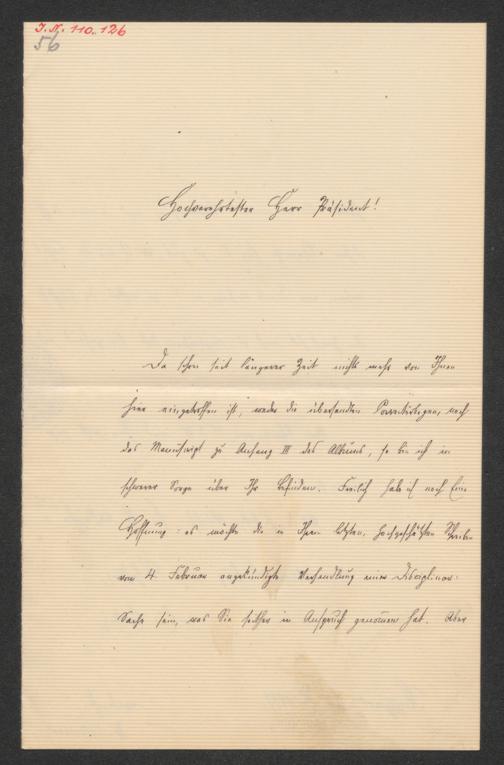 J. N. 110.126
56
Hochverehrtester Herr Präsident!
Da schon seit längerer Zeit nichts mehr von Ihnen
hier eingetroffen ist, weder die übersandten Correcturbogen, noch
das Manuscript zu Anhang III des Albums, so bin ich in
schwerer Sorge über Ihr Befinden. Freilich habe ich noch Eine
Hoffnung: es möchte die in Ihrem letzten, hochgeschätzten Schreiben
vom 4. Februar angekündigte Verhandlung einer Disciplinar-
Sache sein, was Sie seither in Anspruch genommen hat. Aber